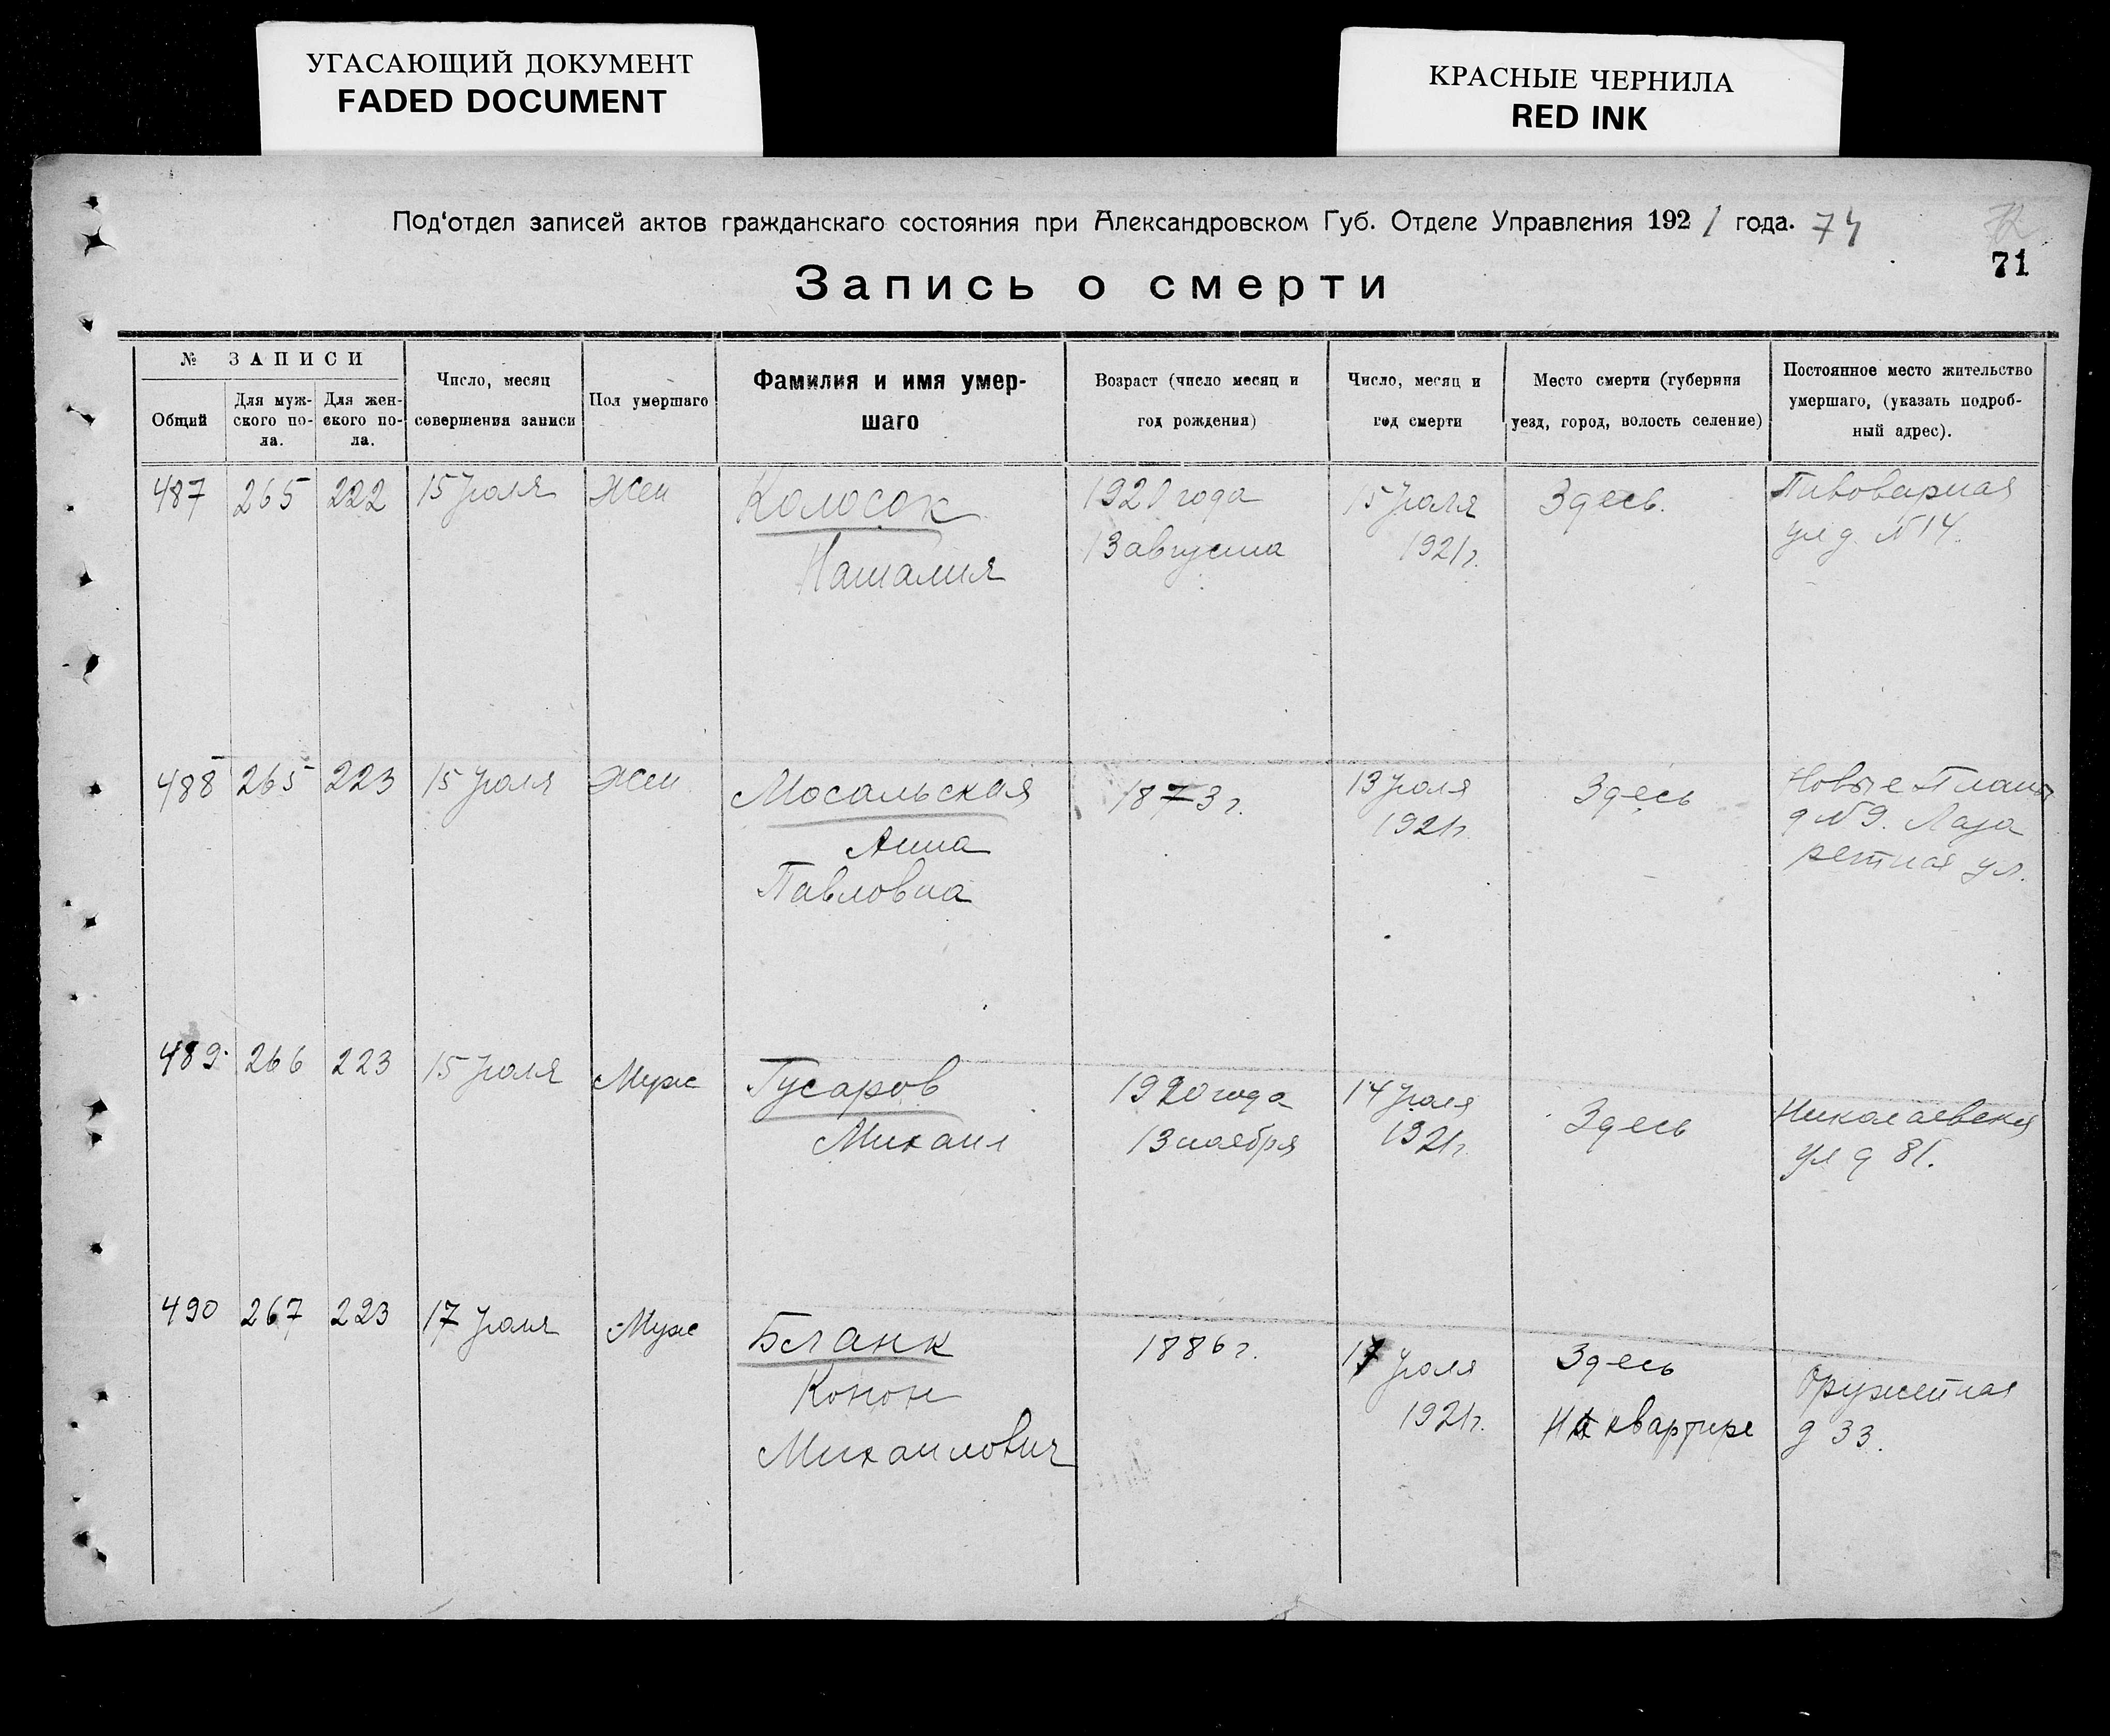 УГАСАЮЩИЙ ДОКУМЕНТ
FADED DOCUMENT
КРАСНЫЕ ЧЕРНИЛА
RED INK
Под'отдел записей актов гражданскаго состояния при Александровском Губ. Отделе Управления 1921 года. 74
72
71
Запись о смерти
№ ЗАПИСИ
Общий
Для муж-
ского по-
ла.
Для жен-
ского по-
ла.
Число, месяц
совершения записи
Пол умершаго
Фамилия и имя умер-
шаго
Возраст (число месяц и
год рождения)
Число, месяц и
год смерти
Место смерти (губерния
уезд, город, волость селение)
Постоянное место жительство
умершаго, (указать подроб-
ный адрес).
487
265
222
15 Июля
Жен
Колосок
Наталия
1920 года
13 августа
15 Июля
1921 г.
Здесь.
Пивоварная
ул д. № 14.
488
265
223
15 Июля
Жен
Мосальская
Анна
Павловна
1873 г.
13 Июля
1921 г.
Здесь
Новые Планы
д № 9. Лаза
ретная ул.
489
266
223
15 Июля
Муж
Гусаров
Михаил
1920 года
13 ноября
14 Июля
1921 г.
Здесь
Николаевская
ул д 81.
490
267
223
17 Июля
Муж
Бланк
Конон
Михайлович
1886 г.
17 Июля
1921 г.
Здесь
На квартире
Оружейная
д 33.